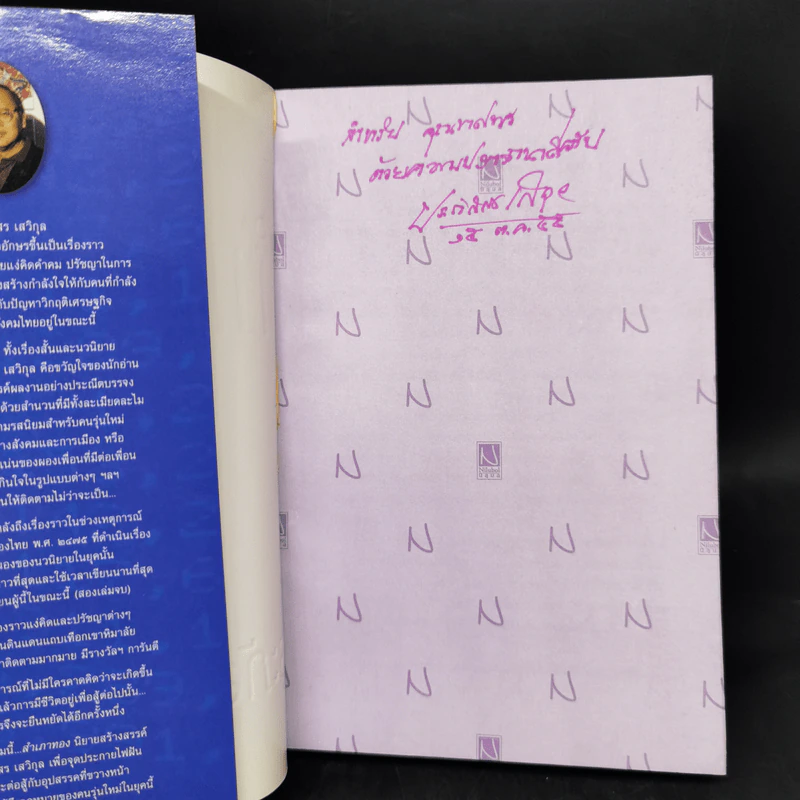 สร เสวิกุล
อักษรขึ้นเป็นเรื่องราว
ยแง่คิดคำคม ปรัชญาในการ
งสร้างกำลังใจให้กับคนที่กำลัง
กับปัญหาวิกฤติเศรษฐกิจ
ังคมไทยอยู่ในขณะนี้
ทั้งเรื่องสั้นและนวนิยาย
เสวิกุล คือขวัญใจของนักอ่าน
รค์ผลงานอย่างประณีตบรรจง
ด้วยสำนวนที่มีทั้งละเมียดละไม
ามรสนิยมสำหรับคนรุ่นใหม่
างสังคมและการเมือง หรือ
แน่นของผองเพื่อนที่มีต่อเพื่อน
กินใจในรูปแบบต่างๆ ฯลฯ
นให้ติดตามไม่ว่าจะเป็น...
ลังถึงเรื่องราวในช่วงเหตุการณ์
องไทย พ.ศ. ๒๔๗๕ ที่ดำเนินเรื่อง
มองของนวนิยายในยุคนั้น
าวที่สุดและใช้เวลาเขียนนานที่สุด
ยนผู้นี้ในขณะนี้ (สองเล่มจบ)
องราวแง่คิดและปรัชญาต่างๆ
นดินแดนแถบเทือกเขาหิมาลัย
าติดตามมากมาย มีรางวัลฯ การันตี
ารณ์ที่ไม่มีใครคาดคิดว่าจะเกิดขึ้น
ล้วการมีชีวิตอยู่เพื่อสู้ต่อไปนั้น...
รจึงจะยืนหยัดได้อีกครั้งหนึ่ง
มนี้...สำเภาทอง นิยายสร้างสรรค์
สร เสวิกุล เพื่อจุดประกายไฟฝัน
ะต่อสู้กับอุปสรรคที่ขวางหน้า
หมายของคนรุ่นใหม่ในยุคนี้
ด้วยความปรารถนาดี
๑๕ ต.ค. ๔๕